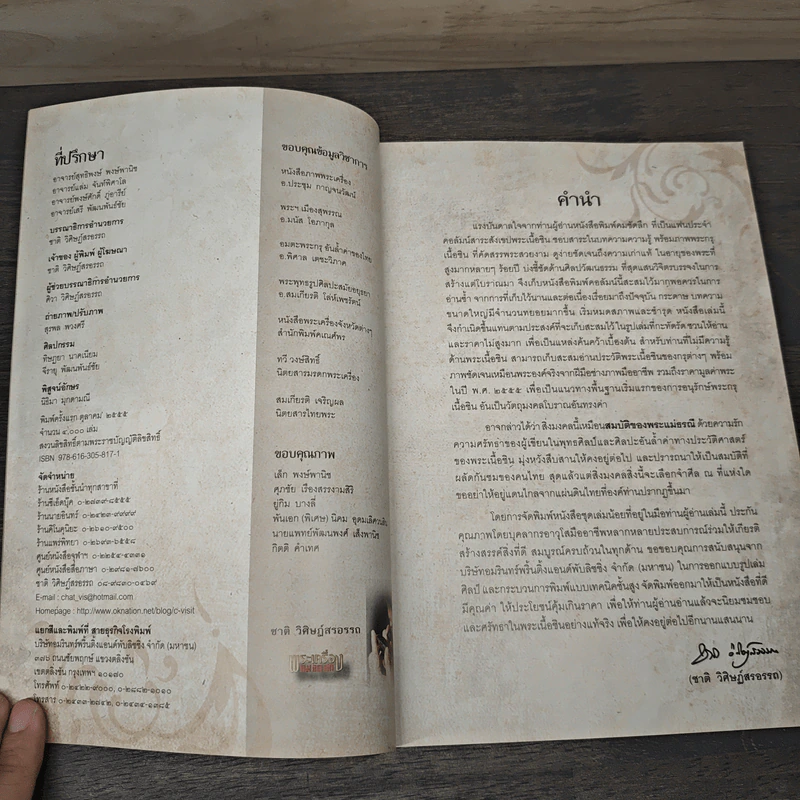 ที่ปรึกษา
อาจารย์สุทธิพงษ์ พงษ์พานิช
อาจารย์แสม จันท์พิศาโล
อาจารย์พงษ์ศักดิ์ ภู่อารีย์
อาจารย์เสรี พัฒนพันธ์ชัย
บรรณาธิการอำนวยการ
ชาติ วิศิษฏ์สรอรรถ
เจ้าของ ผู้พิมพ์ ผู้โฆษณา
ชาติ วิศิษฏ์สรอรรถ
ผู้ช่วยบรรณาธิการอำนวยการ
ศิวา วิศิษฏ์สรอรรถ
ถ่ายภาพ/ปรับภาพ
สุรพล พวงศรี
ศิลปกรรม
ทิษฏยา นาคเนียม
จีรายุ พัฒนพันธ์ชัย
พิสูจน์อักษร
นิธิมา มุกดามณี
พิมพ์ครั้งแรก ตุลาคม/ ๒๕๕๕
จำนวน ๔,๐๐๐ เล่ม
สงวนลิขสิทธิ์ตามพระราชบัญญัติลิขสิทธิ์
ISBN 978-616-305-817-1
จัดจำหน่าย
ร้านหนังสือชั้นนำทุกสาขาที่
ร้านซีเอ็ดบุ๊ค ๐-๒๘๓๙-๘๕๕๕
ร้านนายอินทร์ ๐-๒๔๒๓-๙๙๙๙
ร้านคิโนคูนิยะ ๐-๒๖๑๐-๙๕๐๐
ร้านแพร่พิทยา ๐-๒๖๙๖-๖๕๕๘
ศูนย์หนังสือจุฬาฯ ๐-๒๒๕๔-๔๓๓๑
ศูนย์หนังสือสื่อภาษา ๐-๒๙๔๑-๗๖๐๐
ชาติ วิศิษฏ์สรอรรถ ๐๘-๙๘๓๐-๐๔๖๙
E-mail : chat_vis@hotmail.com
Homepage : http://www.oknation.net/blog/c-visit
แยกสีและพิมพ์ที่ สายธุรกิจโรงพิมพ์
บริษัทอมรินทร์พริ้นติ้งแอนด์พับลิชชิ่ง จำกัด (มหาชน)
๓๗๖ ถนนชัยพฤกษ์ แขวงตลิ่งชัน
เขตตลิ่งชัน กรุงเทพฯ ๑๐๑๗๐
โทรศัพท์ ๐-๒๔๒๒-๙๐๐๐, ๐-๒๘๘๒-๑๐๑๐
โทรสาร ๐-๒๔๓๓-๒๗๔๒, ๐-๒๔๓๔-๑๓๘๕
ขอบคุณข้อมูลวิชาการ
หนังสือภาพพระเครื่อง
อ.ประชุม กาญจนวัฒน์
พระฯ เมืองสุพรรณ
อ.มนัส โอภากุล
อมตะพระกรุ อันล้ำค่าของไทย
อ.พิศาล เตชะวิภาค
พระพุทธรูปศิลปะสมัยอยุธยา
อ.สมเกียรติ โล่ห์เพชรัตน์
หนังสือพระเครื่องจังหวัดต่างๆ
สำนักพิมพ์คเณศ์พร
ทวี วงษ์สิทธิ์
นิตยสารมรดกพระเครื่อง
สมเกียรติ เจริญผล
นิตยสารไทยพระ
ขอบคุณภาพ
เล็ก พงษ์พานิช
ศุภชัย เรืองสรรงามสิริ
ยู่กิม บางลี่
พันเอก (พิเศษ) นิคม
นายแพทย์พัฒนพงศ์ เส็งพานิช
กิตติ คำเทศ
ชาติ วิศิษฏ์สรอรรถ
คำนำ
แรงบันดาลใจจากท่านผู้อ่านหนังสือพิมพ์คมชัดลึก ที่เป็นแฟนประจำ
คอลัมน์สาระสังเขปพระเนื้อชิน ชอบสาระในบทความความรู้ พร้อมภาพพระกรุ
เนื้อชิน ที่คัดสรรพระสวยงาม ดูง่ายชัดเจนถึงความเก่าแก่ ในอายุของพระที่
สูงมากหลายๆ ร้อยปี บ่งชี้ชัดด้านศิลปวัฒนธรรม ที่สุดแสนวิจิตรบรรจงในการ
สร้างแต่โบราณมา จึงเก็บหนังสือพิมพ์คอลัมน์นี้สะสมไว้มากูพอควรในการ
อ่านซ้ำ จากการที่เก็บไว้นานและต่อเนื่องเรื่อยมาถึงปัจจุบัน กระดาษ บทความ
ขนาดใหญ่มีจำนวนทยอยมากขึ้น เริ่มหมดสภาพและชำรุด หนังสือเล่มนี้
จึงกำเนิดขึ้นแทนตามประสงค์ที่จะเก็บสะสมไว้ ในรูปเล่มที่กะทัดรัด ชวนให้อ่าน
และราคาไม่สูงมาก เพื่อเป็นแหล่งค้นคว้าเบื้องต้น สำหรับท่านที่ไม่มีความรู้
ด้านพระเนื้อชิน สามารถเก็บสะสมอ่านประวัติพระเนื้อชินของกรุต่างๆ พร้อม
ภาพชัดเจนเหมือนพระองค์จริงจากฝีมือช่างภาพมืออาชีพ รวมถึงราคามูลค่าพระ
ในปี พ.ศ. ๒๕๕๕ เพื่อเป็นแนวทางพื้นฐานเริ่มแรกของการอนุรักษ์พระกรุ
เนื้อชิน อันเป็นวัตถุมงคลโบราณอันทรงค่า
อาจกล่าวได้ว่า สิ่งมงคลนี้เหมือนสมบัติของพระแม่ธรณี ด้วยความรัก
ความศรัทธาของผู้เขียนในพุทธศิลป์และศิลปะอันล้ำค่าทางประวัติศาสตร์
ของพระเนื้อชิน มุ่งหวังสืบสานให้คงอยู่ต่อไป และปรารถนาให้เป็นสมบัติที่
ผลัดกันชมของคนไทย สุดแล้วแต่สิ่งมงคลสิ่งนี้จะเลือกจำศีล ณ ที่แห่งใด
ขออย่าให้อยู่แดนไกลจากแผ่นดินไทยที่องค์ท่านปรากฏขึ้นมา
โดยการจัดพิมพ์หนังสือชุดเล่มน้อยที่อยู่ในมือท่านผู้อ่านเล่มนี้ ประกัน
คุณภาพโดยบุคลากรอาวุโสมืออาชีพหลากหลายประสบการณ์ร่วมให้เกียรติ
สร้างสรรค์สิ่งที่ดี สมบูรณ์ครบถ้วนในทุกด้าน ขอขอบคุณการสนับสนุนจาก
บริษัทอมรินทร์พริ้นติ้งแอนด์พับลิชชิ่ง จำกัด (มหาชน) ในการออกแบบรูปเล่ม
ศิลป์ และกระบวนการพิมพ์แบบเทคนิคชั้นสูง จัดพิมพ์ออกมาให้เป็นหนังสือที่ดี
มีคุณค่า ให้ประโยชน์คุ้มเกินราคา เพื่อให้ท่านผู้อ่านอ่านแล้วจะนิยมชมชอบ
และศรัทธาในพระเนื้อชินอย่างแท้จริง เพื่อให้คงอยู่ต่อไปอีกนานแสนนาน
(ชาติ วิศิษฏ์สรอรรถ)